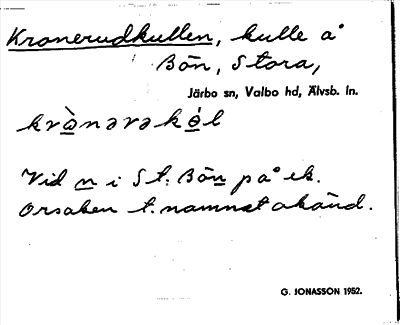 Kronerudkullen, kulle å
Bön, Stora,
Järbo sn, Valbo hd, Älvsb. ln.
krὰnərəkél
Vid n i St. Bön på ek.
Orsaken t. namnet okänd.
G. JONASSON 1952.